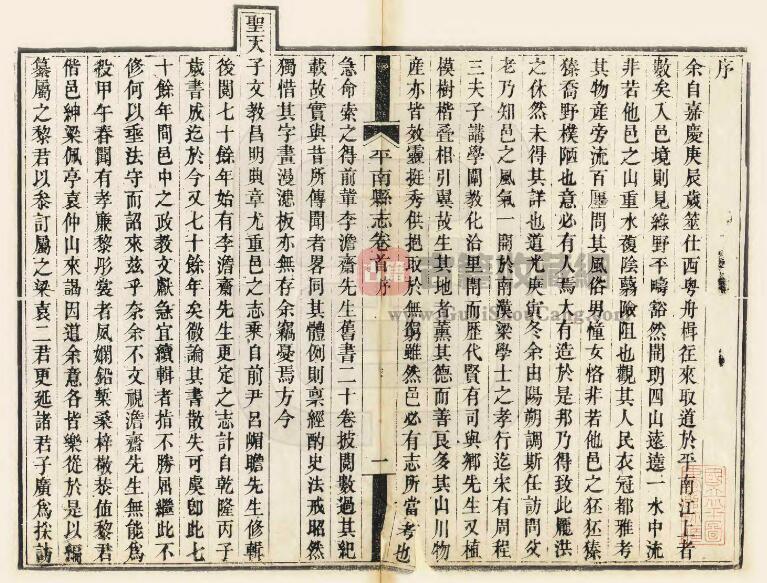 序
余自嘉慶庚辰歲筮仕西粤舟楫往來取道於平南江上者
數矣入邑境則見綠野平疇豁然開朗四山遠遶一水中流
非若他邑之山重水複陰翳險阻也觀其人民衣冠都雅考
其物産旁流百
問其風俗男憧女恪非若他邑之狉狉獉
獉喬野樸陋也意必有人焉大有造於是邦乃得致此龐洪
之休然未得其詳也道光庚寅冬余由陽朔調斯任訪問父
老乃知邑之風氣一開於南漢梁學士之孝行迄宋有周程
三夫子講學闡教化洽里閈而歷代賢有司與鄉先生又植
模樹楷疊相引翼故生其地者薰其德而善良多其山川物
産亦皆效靈挺秀供挹取於無窮雖然邑必有志所當考也
平南縣志卷首 序
一
急命索之得前輩李澹齋先生舊書二十卷披閱數過其紀
載故實與昔所傳聞者畧同其體例則稟經酌史法戒昭然
獨惜其字畫漫漶板亦無存余竊憂焉方今
聖天子文教昌明典章尤重邑之志乘自前尹呂
瞻先生修輯
後閱七十餘年始有李澹齋先生更定之志計自乾隆丙子
歲書成迄於今又七十餘年矣微論其書散失可虞卽此七
十餘年間邑中之政教文獻急宜續輯者指不勝屈繼此不
修何以垂法守而詔來兹乎奈余不文視澹齋先生無能爲
役甲午春聞有孝廉黎彤裳者夙嫻鉛槧桑梓敬恭値黎君
偕邑紳梁佩亭袁仲山來謁因道余意各皆樂從於是以編
纂屬之黎君以叅訂屬之梁袁二君更延諸君子廣爲採訪
古籍收藏網
www.GuJiShouCang.com